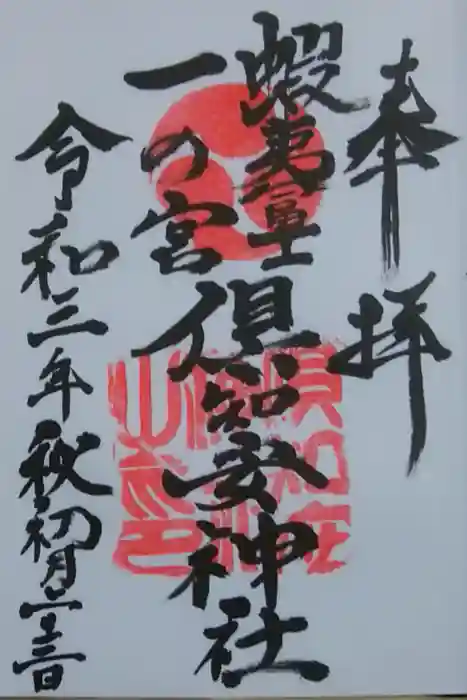 奉拝
蝦夷富士
一の宮
倶知安神社
令和三年秋初月二十三日